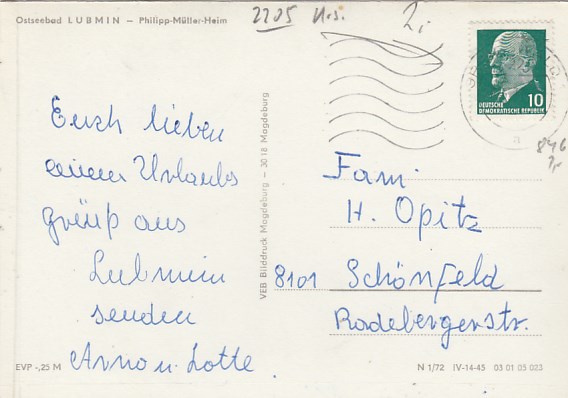 Ostseebad LUBMIN – Philipp-Müller-Heim
2205
2,-
DEUTSCHE
DEMOKRATISCHE REPUBLIK
10
846
Euch lieben
einen Urlaubs
grüß aus
Lubmin
senden
Arno u. Lotte.
VEB Bilddruck Magdeburg – 3018 Magdeburg
Fam.
H. Opitz
8101 Schönfeld
Radebergerstr.
EVP -,25 M
N 1/72 IV-14-45 03 01 05 023